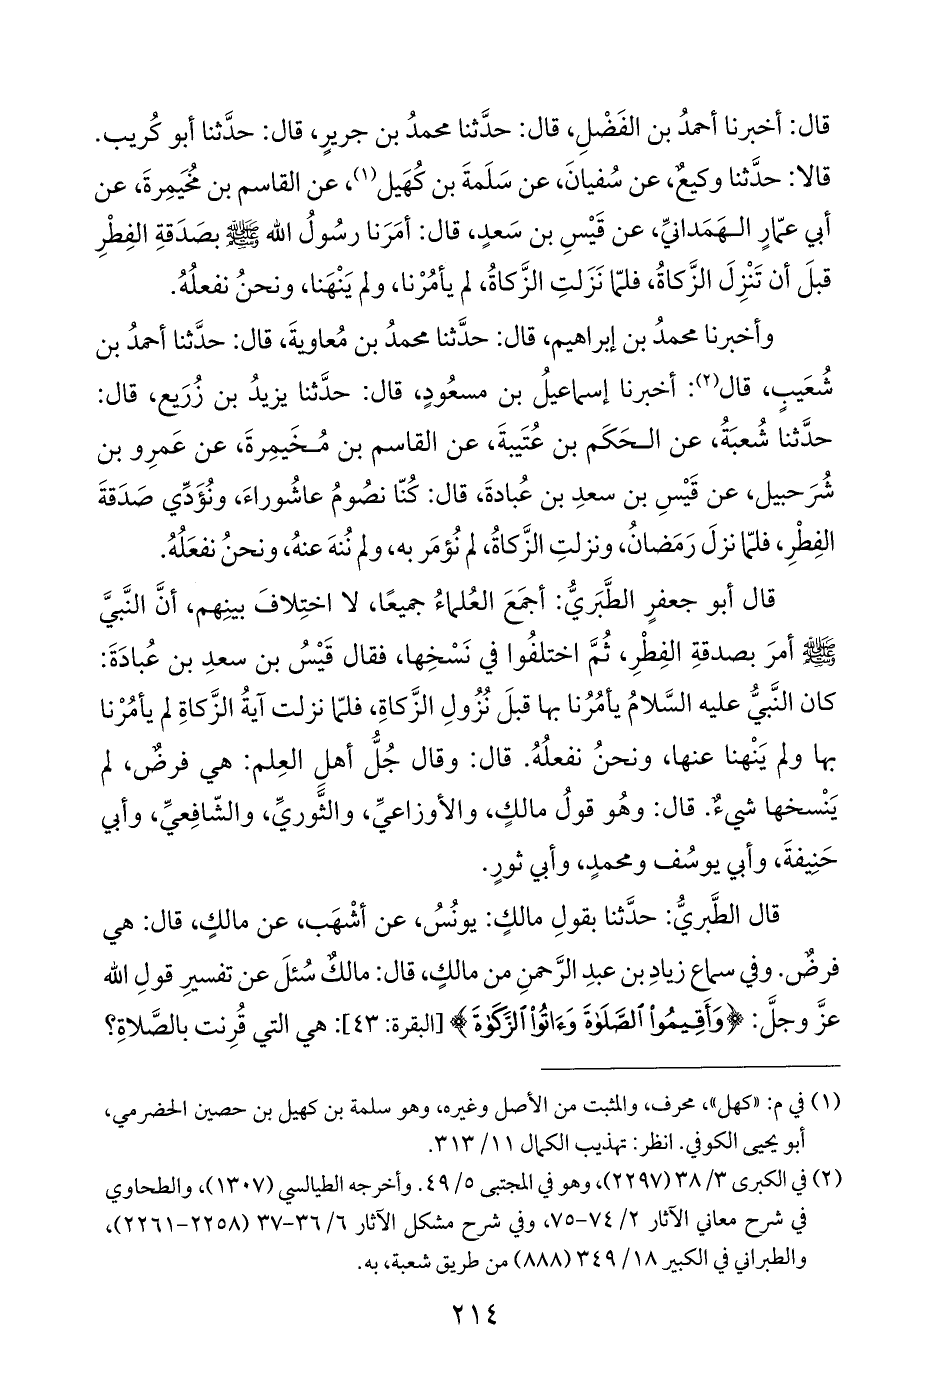 قال: أخبرنا أحمدُ بن الفَضْلِ، قال: حدَّثنا محمدُ بن جريرٍ، قال: حدَّثنا أبو كُريب.
قالا: حدَّثنا وكيعٌ، عن سُفيانَ، عن سَلَمةَ بن كُهَيل(١)، عن القاسم بن مُخَيمِرةَ، عن
أبي عمّارٍ الـهَمَدانيِّ، عن قَيْسِ بن سَعدٍ، قال: أمَرَنا رسُولُ الله ﷺ بصَدَقةِ الفِطْرِ
قبلَ أن تَنْزِلَ الزَّكاةُ، فلمّا نَزَلتِ الزَّكاةُ، لم يأمُرْنا، ولم يَنْهَنا، ونحنُ نفعلُهُ.
وأخبرنا محمدُ بن إبراهيم، قال: حدَّثنا محمدُ بن مُعاويةَ، قال: حدَّثنا أحمدُ بن
شُعَيبٍ، قال(٢): أخبرنا إسماعيلُ بن مسعُودٍ، قال: حدَّثنا يزيدُ بن زُرَيع، قال:
حدَّثنا شُعبَةُ، عن الـحَكَم بن عُتَيبةَ، عن القاسم بن مُـخَيمِرةَ، عن عَمرِو بن
شُرَحبيل، عن قَيْسِ بن سعدِ بن عُبادةَ، قال: كُنّا نصُومُ عاشُوراءَ، ونُؤَدِّي صَدَقةَ
الفِطْرِ، فلمّا نزل رَمَضانُ، ونزلتِ الزَّكاةُ، لم نُؤمَر به، ولم نُنهَ عنهُ، ونحنُ نفعَلُهُ.
قال أبو جعفرٍ الطَّبَريُّ: أجمَعَ العُلماءُ جميعًا، لا اختِلافَ بينهم، أنَّ النَّبيَّ
ﷺ أمرَ بصدقةِ الفِطْرِ، ثُمَّ اختلفُوا في نَسْخِها، فقال قَيْسُ بن سعدِ بن عُبادَةَ:
كان النَّبيُّ عليه السَّلامُ يأمُرُنا بها قبلَ نُزُولِ الزَّكاةِ، فلمّا نزلت آيةُ الزَّكاةِ لم يأمُرْنا
بها ولم يَنْهنا عنها، ونحنُ نفعلُهُ. قال: وقال جُلُّ أهلِ العِلم: هي فرضٌ، لم
يَنْسخها شيءٌ. قال: وهُو قولُ مالكٍ، والأوزاعيِّ، والثَّوريِّ، والشّافِعيِّ، وأبي
حَنِيفةَ، وأبي يوسُف ومحمدٍ، وأبي ثورٍ.
قال الطَّبريُّ: حدَّثنا بقولِ مالكٍ: يونُسُ، عن أشْهَب، عن مالكٍ، قال: هي
فرضٌ. وفي سماع زيادِ بن عبدِ الرَّحمنِ من مالكٍ، قال: مالكٌ سُئلَ عن تفسيرِ قولِ الله
عزَّ وجلَّ: ﴿وَأَقِيمُواْ ٱلصَّلَوٰةَ وَءَاتُواْ ٱلزَّكَوٰةَ﴾ [البقرة: ٤٣]: هي التي قُرِنت بالصَّلاةِ؟
(١) في م: «كهل»، محرف، والمثبت من الأصل وغيره، وهو سلمة بن كهيل بن حصين الحضرمي،
أبو يحيى الكوفي. انظر: تهذيب الكمال ١١/ ٣١٣.
(٢) في الكبرى ٣/ ٣٨ (٢٢٩٧)، وهو في المجتبى ٥/ ٤٩. وأخرجه الطيالسي (١٣٠٧)، والطحاوي
في شرح معاني الآثار ٢/ ٧٤-٧٥، وفي شرح مشكل الآثار ٦/ ٣٦-٣٧ (٢٢٥٨-٢٢٦١)،
والطبراني في الكبير ١٨/ ٣٤٩ (٨٨٨) من طريق شعبة، به.
٢١٤